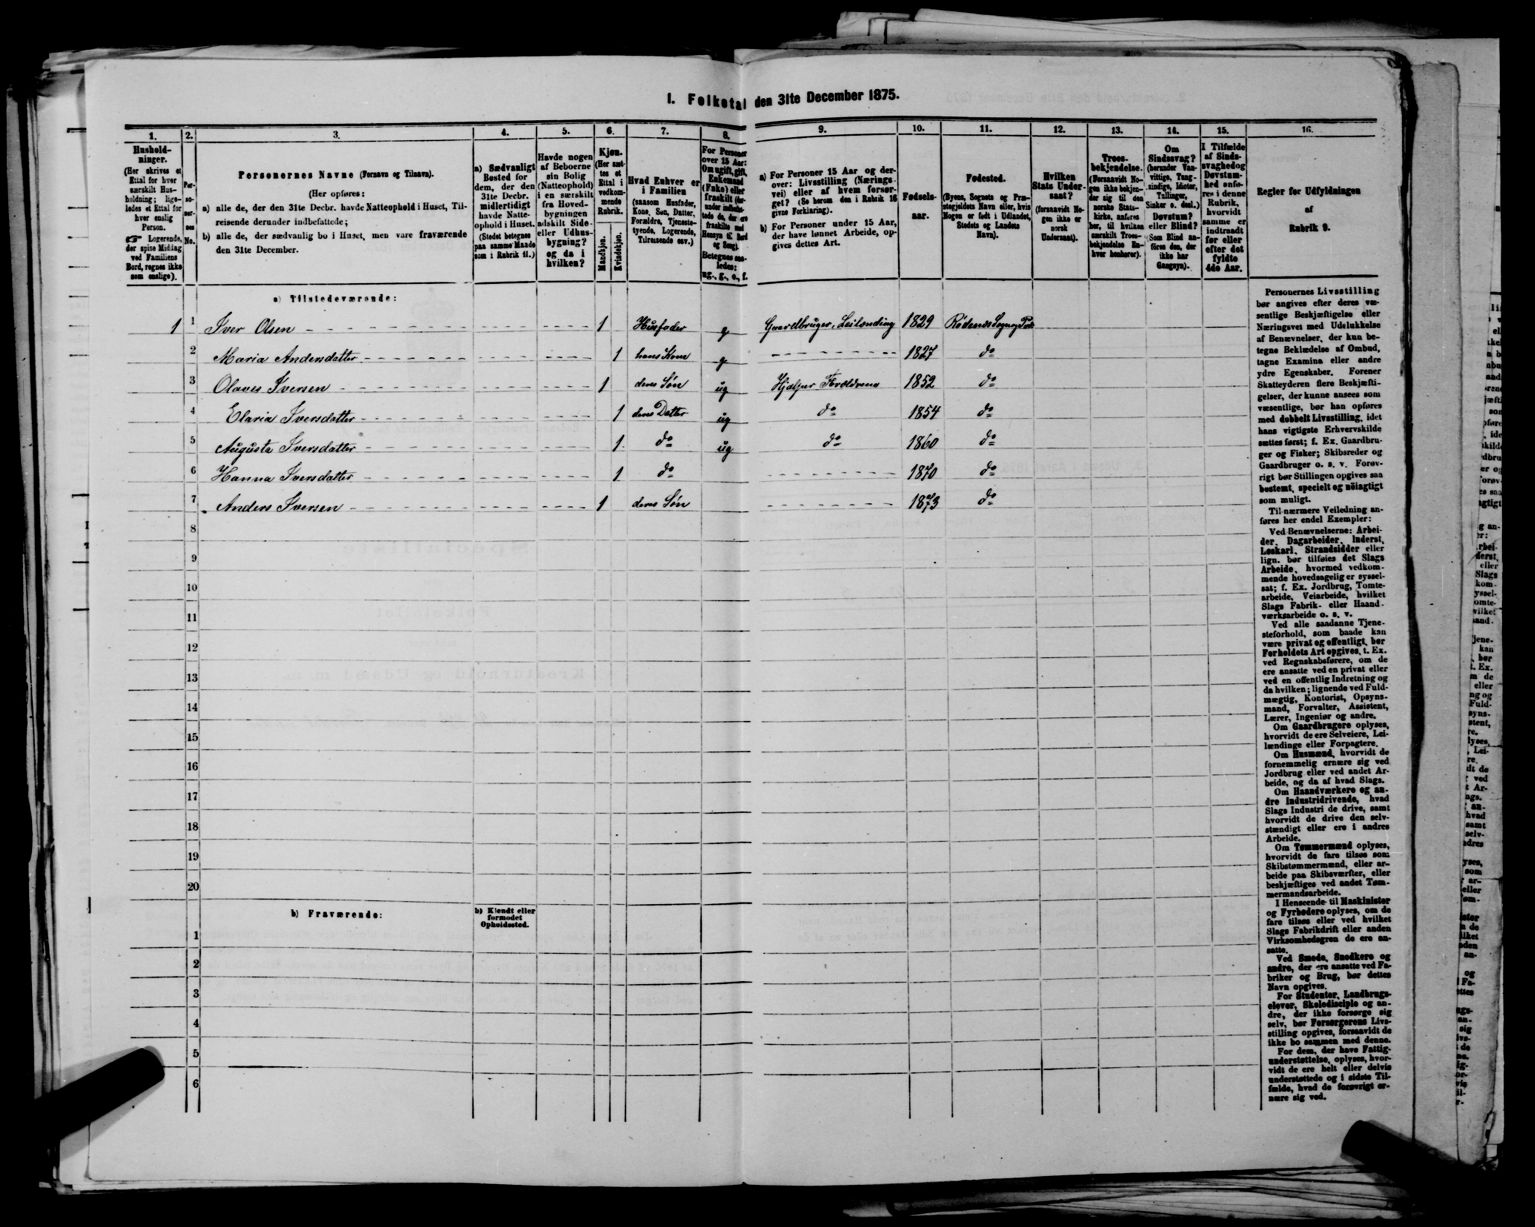 1. Folketal den 31te December 1875.
1.
Hushold-
ninger.
(Her skrives et
Ettal for hver
særskilt Hus-
holdning; lige-
ledes et Ettal for
hver enslig
Person.
☞ Logerende,
der spise Middag
ved Familiens
Bord, regnes ikke
som enslige).
2.
Per-
so-
ner-
nes
No.
3.
Personernes Navne (Fornavn og Tilnavn).
(Her opføres:
a) alle de, der den 31te Decbr. havde Natteophold i Huset, Til-
reisende derunder indbefattede;
b) alle de, der sædvanlig bo i Huset, men vare fraværende
den 31te December.
4.
a) Sædvanligt
Bosted for
dem, der den
31te Decbr.
midlertidigt
havde Natte-
ophold i Huset.
(Stedet betegnes
paa samme Maade
som i Rubrik 11.)
5.
Havde nogen
af Beboerne
sin Bolig
(Natteophold)
i en særskilt
fra Hoved-
bygningen
adskilt Side-
eller Udhus-
bygning?
og da i
hvilken?
6.
Kjøn.
(Her sæt-
tes et
Ettal i
vedkom-
mende
Rubrik.
Mandkjøn.
Kvindekjøn.
7.
Hvad Enhver er
i Familien
(saasom Husfader,
Kone, Søn, Datter,
Forældre, Tjeneste-
tyende, Logerende,
Tilreisende osv.)
8.
For Personer
over 15 Aar:
Om ugift, gift,
Enkemand
(Enke) eller
fraskilt
Betegnes saa-
ledes:
ug., g., e., f.
9.
a) For Personer 15 Aar og der-
over: Livsstilling (Nærings-
vei) eller af hvem forsør-
get? (Se herom den i Rubrik 16
givne Forklaring).
b) For Personer under 15 Aar,
der have lønnet Arbeide, op-
gives dettes Art.
10.
Fødsels-
aar.
11.
Fødested.
(Byens, Sognets og Præ-
stegjældets Navn eller, hvis
Nogen er født i Udlandet,
Stedets og Landets
Navn).
12.
Hvilken
Stats Under-
saat?
(forsaavidt No-
gen ikke er
norsk
Undersaat).
13.
Troes-
bekjendelse.
(Forsaavidt No-
gen ikke bekjen-
der sig til den
norske Stats-
kirke, anføres
her, til hvilken
særskilt Troes-
bekjendelse En-
hver henhører).
14.
Om
Sindssvag?
(herunder Van-
vittige, Tung-
sindige, Idioter,
Tullinger,
Sinker o. desl.)
Døvstum?
eller Blind?
(Som Blind an-
føres den, der
ikke har
Gangsyn).
15.
I Tilfælde
af Sinds-
svaghedog
Døvstum-
hed anfø-
res i denne
Rubrik,
hvorvidt
samme er
indtraadt
før eller
efter det
fyldte
4de Aar.
16.
Regler for Udfyldningen
af
Rubrik 9.
a) Tilstedeværende:
1 1 Iver Olsen 1 Husfader g Gaardbruger, Leilænding 1829
2 Maria Andersdatter 1 hans Kone g 1827 do
3 Olaves Iversen 1 deres Søn ug Hjælper Forældrene 1852 do
4 Elaria Iversdatter 1 deres Datter ug do 1854 do
5 Augusta Iversdatter 1 do ug do 1860 do
6 Hanna Iversdatter 1 do 1870 do
7 Anders Iversen 1 deres Søn 1873 do
8
9
10
11
12
13
14
15
16
17
18
19
20
b) Fraværende:
b) Kjendt eller
formodet
Opholdssted.
1
2
3
4
5
6
Personernes Livsstilling
bør angives efter deres væ-
sentlige Beskjæftigelse eller
Næringsvei med Udelukkelse
af Benævnelser, der kun be-
tegne Beklædelse af Ombud,
tagne Examina eller andre
ydre Egenskaber. Forener
Skatteyderen flere Beskjæfti-
gelser, der kunne ansees som
væsentlige, bør han opføres
med dobbelt Livsstilling, idet
hans vigtigste Erhvervskilde
sættes først; f. Ex. Gaardbru-
ger og Fisker; Skibsreder og
Gaardbruger o. s. v. Forøv-
rigt bør Stillingen opgives saa
bestemt, specielt og nøiagtigt
som muligt.
Til nærmere Veiledning an-
føres her endel Exempler:
Ved Benævnelserne: Arbei-
der, Dagarbeider, Inderst,
Løskarl, Strandsidder eller
lign. bør tilføies det Slags
Arbeide, hvormed vedkom-
mende hovedsagelig er syssel-
sat; f. Ex. Jordbrug, Tomte-
arbeide, Veiarbeide, hvilket
Slags Fabrik- eller Haand-
værksarbeide o. s. v.
Ved alle saadanne Tjene-
steforhold, som baade kan
være privat og offentligt, bør
Forholdets Art opgives, t. Ex.
ved Regnskabsførere, om de
ere ansatte ved en privat eller
ved en offentlig Indretning og
da hvilken; lignende ved Fuld-
mægtig, Kontorist, Opsyns-
mand, Forvalter, Assistent,
Lærer, Ingeniør og andre.
Om Gaardbrugere oplyses,
hvorvidt de ere Selveiere, Lei-
lændinge eller Forpagtere.
Om Husmænd, hvorvidt de
fornemmelig ernære sig ved
Jordbrug eller ved andet Ar-
beide, og da af hvad Slags.
Om Haandværkere og an-
dre Industridrivende, hvad
Slags Industri de drive, samt
hvorvidt de drive den selv-
stændigt eller ere i andres
Arbeide.
Om Tømmermænd oplyses,
hvorvidt de fare tilsøs som
Skibstømmermænd, eller ar-
beide paa Skibsværfter, eller
beskjæftiges ved andet Tøm-
mermandsarbeide.
I Henseende til Maskinister
og Fyrbødere oplyses, om de
fare tilsøs eller ved hvilket
Slags Fabrikdrift eller anden
Virksomhedsgren de ere an-
satte.
Ved Smede, Snedkere og
andre, der ere ansatte ved Fa-
briker og Brug, bør dettes
Navn opgives.
For Studenter, Landbrugs-
elever, Skoledisciple og an-
dre, der ikke forsørge sig
selv, bør Forsørgerens Livs-
stilling opgives, forsaavidt de
ikke bo sammen med denne.
For dem, der have Fattig-
understøttelse, oplyses, hvor-
vidt de ere helt eller delvis
understøttede og i sidste Til-
fælde, hvad de forøvrigt er-
nære sig ved.